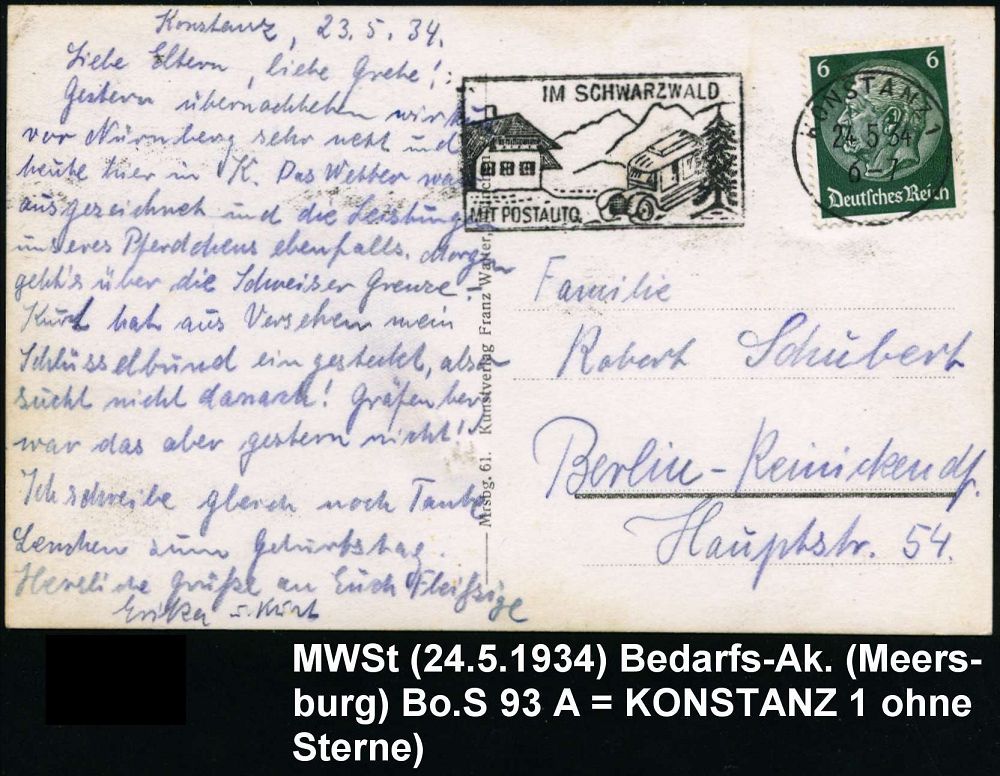 Konstanz, 23.5.34.
Liebe Eltern, liebe Grete!
Gestern übernachteten wir kurz
vor Nürnberg sehr nett und
heute hier in K. Das Wetter war
ausgezeichnet und die Leistungen
unseres Pferdchens ebenfalls. Morgen
geht's über die Schweizer Grenze!
Kurt hat aus Versehen mein
Schlüsselbund eingesteckt, also
sucht nicht danach! Gräfenberg
war das aber gestern nicht!
Ich schreibe gleich noch Tante
Lenchen zum Geburtstag.
Herzliche Grüße an Euch Fleißige
Erika u. Kurt
Mrsbg. 61. Kunstverlag Franz Walter,
IM SCHWARZWALD
MIT POSTAUTO
6 6
Deutsches Reich
KONSTANZ 1
24.5.34
6-7
Familie
Robert Schubert
Berlin-Reinickendf.
Hauptstr. 54.
MWSt (24.5.1934) Bedarfs-Ak. (Meers-
burg) Bo.S 93 A = KONSTANZ 1 ohne
Sterne)